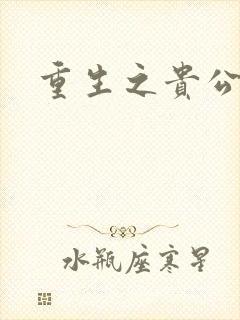 重生之貴公
水瓶座寒星